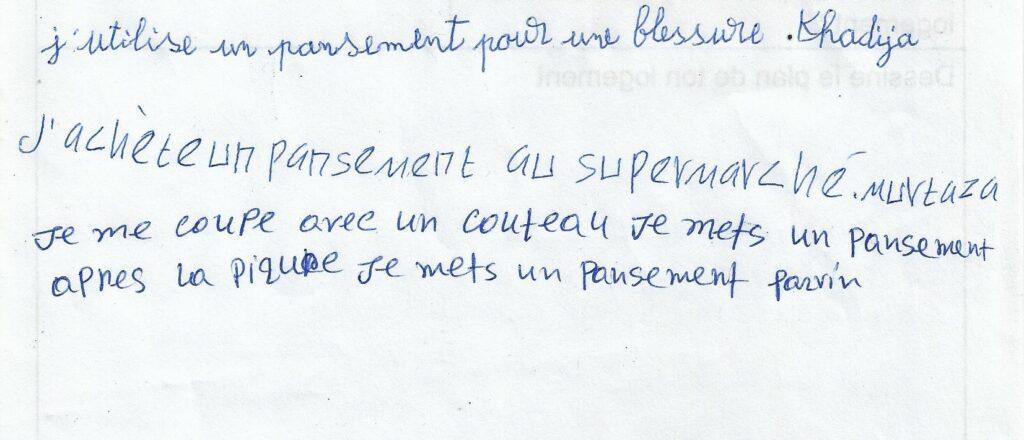 j'utilise un pansement pour une blessure. Khadija
J'achète un pansement au supermarché. Murtaza
Je me coupe avec un couteau je mets un pansement
apres la piqure Je mets un pansement parvin
logement
Dessine le plan de ton logement